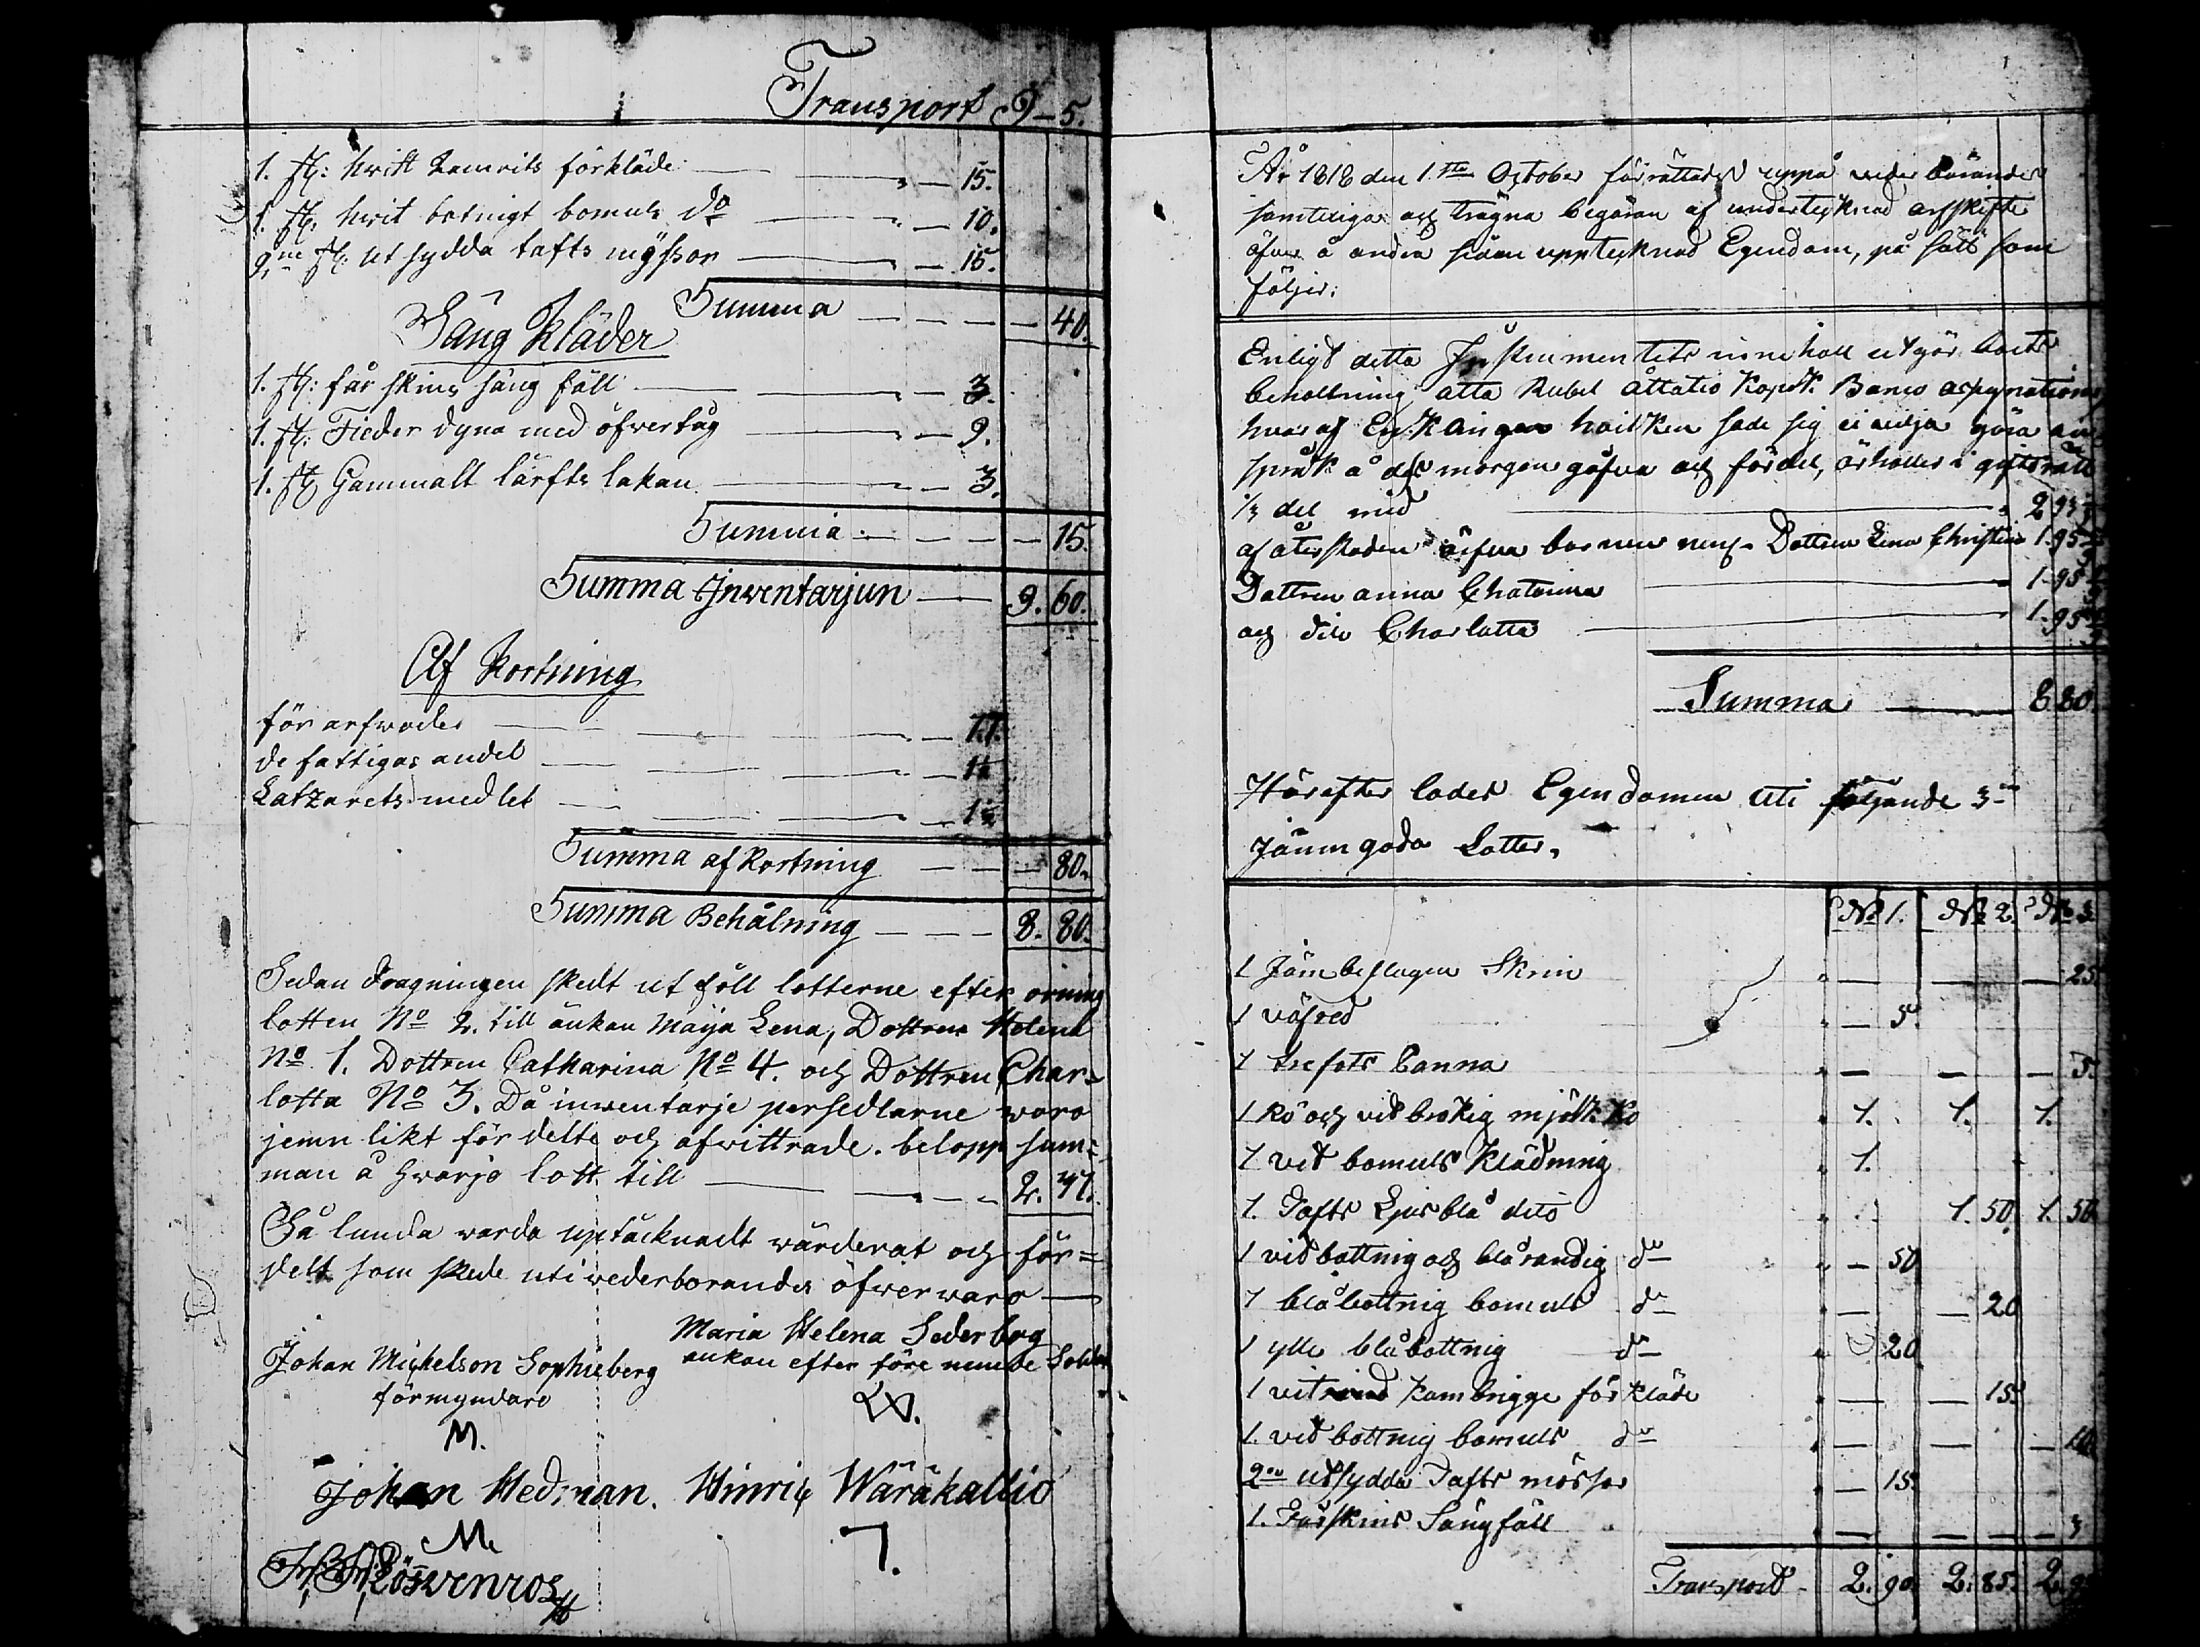 Transport 9 - 5.
1. st: hvitt kamriks förkläde - 15.
1. st: hvit botnigt bomuls do - 10.
2ne st. ut sydda tafts myssor - 15.
Summa - 40.
Säng Kläder
1. st: får skins säng fäll - 3.
1. st: Fieder dyna med öfvertåg - 9.
1. st Gammalt lärfts lakan - 3.
Summa - 15.
Summa Inventarjun - 9. 60.
Af Kortning
för arfwodes - 77.
de fattigas andel - 1½
Latzarets medlet - 1½
Summa af Kortning - 80.
Summa Behålning - 8. 80.
Sedan dragningen skedt ut föll lotterne efter orning
lotten No 2. till änkan Maija Lena, Dottren Helena
No 1. Dottren Catharina No 4. och Dottren Char-
lotta No 3. Då inwentarje persedlarne woro
jemn likt för delte och afwittrade. belopp sum-
man å hwarje lott till - 2. 47.
Så lunda warda uptäcknadt wärderat och för=
delt som skede uti wederborandes öfwerwaro
Maria Helena Sederberg
Johan Michelson Sophieberg ankan efter före nemde Soldat
förmyndare
M.
Johan Hedman. Hinric Waräkallio
M.
År 1818 den 1sta October förrättades uppå vederbörandes
samteliga och trägna begäran af undertecknad arfskifte
öfver å andra sidan upptecknad Egendom, på sätt som
följer:
Enligt detta Instrumentets innehåll utgör boets
behållning åtta Rubel åttatio Kopek. Banco assignationer
hvaraf Enkan hvilken sade sig ei vilja göra an
språk å dess morgongåfva och fördel, ärhåller i giftorätt
1/3 del med 2 93⅓
af återstoden ärfva barnen neml. Dottren Lena Christina 1.95
Dottren anna Chatarina 1.95
och dito Charlotta 1.95
Summa 8 80.
Härefter lades Egendomen uti följande 3ne
jämngoda Lotter.
No 1. No 2. No 3.
1 Järnbeslagen Skrin - 25.
1 väfsked - 5.
1 trefots Panna - 5.
1 Rö och vit brokig mjölk Ko 1. 1. 1.
1 vit bomuls Klädning 1.
1. Tafts Ljusblå dito 1. 50. 1. 50.
1 vidbottnig och blårandig do - 50
1 blåbottnig bomuls do - 20
1 ylle blåbottnig do 20
1 vit Kambrigge förkläde - 15.
1. vidbottnig bomuls do - 10.
2ne utsydda Tafts mössor - 15.
1. Fårskins Sängfäll - 3
Transport - 2. 90. 2. 85. 2. 9